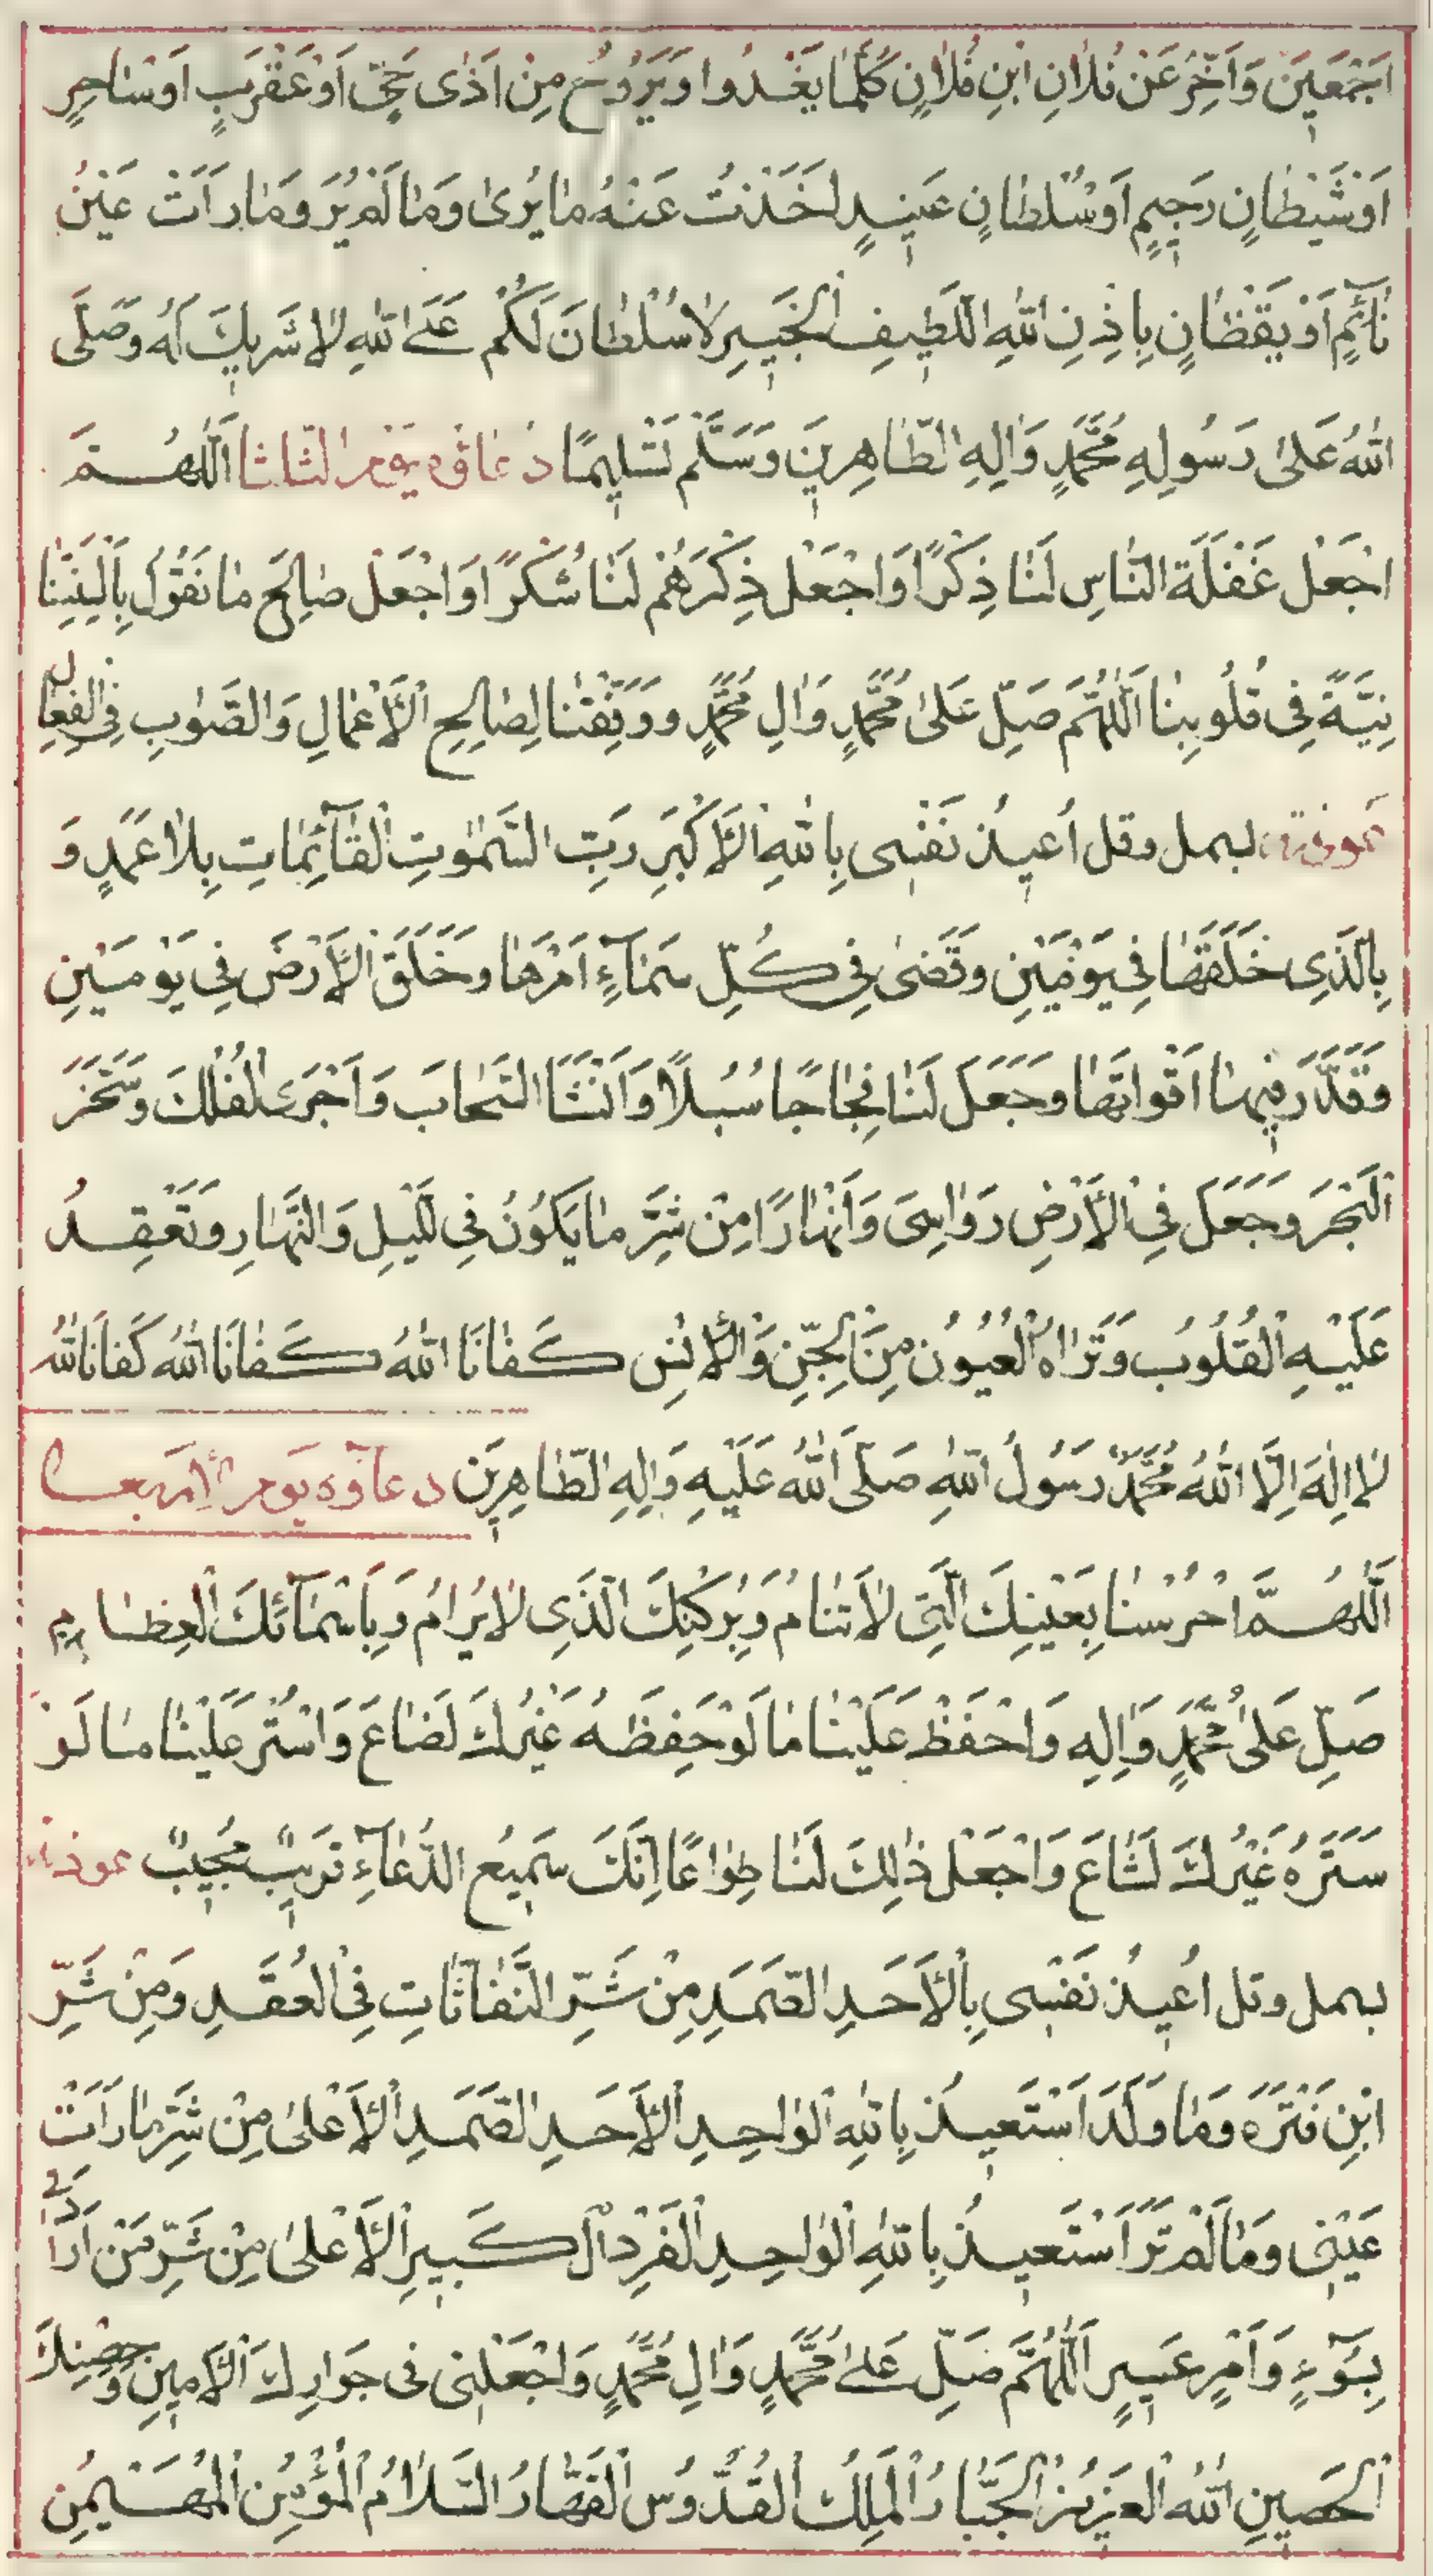 اَجْمَعِينَ وَاَخِّرْ عَنْ فُلَانِ ابْنِ فُلَانٍ كُلَّمَا يَغْدُوا وَيَرُوحُ مِنْ اَذٰى حَىٍّ اَوْ عَقْرَبٍ اَوْ سَاحِرٍ
اَوْ شَيْطَانٍ رَجِيمٍ اَوْ سُلْطَانٍ عَنِيدٍ اَخَذْتُ عَنْهُ مَا يُرٰى وَمَا لَمْ يُرَ وَمَا رَاَتْ عَيْنُ
نَائِمٍ اَوْ يَقْظَانٍ بِاِذْنِ اللّٰهِ اللَّطِيفِ الْخَبِيرِ لَا سُلْطَانَ لَكُمْ عَلَى اللّٰهِ لَا شَرِيكَ لَهُ وَصَلَّى
اللّٰهُ عَلٰى رَسُولِهِ مُحَمَّدٍ وَاٰلِهِ الطَّاهِرِينَ وَسَلَّمَ تَسْلِيمًا دُعَاؤه يَوْم الثلثا اَللّٰهُمَّ
اجْعَلْ غَفْلَةَ النَّاسِ لَنَا ذِكْرًا وَاجْعَلْ ذِكْرَهُمْ لَنَا شُكْرًا وَاجْعَلْ صَالِحَ مَا نَقُولُ بِاَلْسِنَتِنَا
نِيَّةً فِى قُلُوبِنَا اَللّٰهُمَّ صَلِّ عَلٰى مُحَمَّدٍ وَاٰلِ مُحَمَّدٍ وَوَفِّقْنَا لِصَالِحِ الْاَعْمَالِ وَالصَّوٰابِ فِى الْفِعَالِ
عوذته بسمل وقل اُعِيذُ نَفْسِى بِاللّٰهِ الْاَكْبَرِ رَبِّ السَّمٰوٰتِ الْقَائِمَاتِ بِلَا عَمَدٍ وَ
بِالَّذِى خَلَقَهَا فِى يَوْمَيْنِ وَقَضٰى فِى كُلِّ سَمَاءٍ اَمْرَهَا وَخَلَقَ الْاَرْضَ فِى يَوْمَيْنِ
وَقَدَّرَ فِيهَا اَقْوَاتَهَا وَجَعَلَ لَنَا فِجَاجًا سُبُلًا وَاَنْشَأَ السَّحَابَ وَاَجْرَى الْفُلْكَ وَسَخَّرَ
الْبَحْرَ وَجَعَلَ فِى الْاَرْضِ رَوَاسِىَ وَاَنْهَارًا مِنْ شَرِّ مَا يَكُونُ فِى اللَّيْلِ وَالنَّهَارِ وَتَعْقِدُ
عَلَيْهِ الْقُلُوبُ وَتَرَاهُ الْعُيُونُ مِنَ الْجِنِّ وَالْاِنْسِ كَفَانَا اللّٰهُ كَفَانَا اللّٰهُ كَفَانَا اللّٰهُ
لَا اِلٰهَ اِلَّا اللّٰهُ مُحَمَّدٌ رَسُولُ اللّٰهِ صَلَّى اللّٰهُ عَلَيْهِ وَاٰلِهِ الطَّاهِرِينَ دعاؤه يَوم الأربعا
اَللّٰهُمَّ احْرُسْنَا بِعَيْنِكَ الَّتِى لَا تَنَامُ وَبِرُكْنِكَ الَّذِى لَا يُرَامُ وَبِاَسْمَائِكَ الْعِظَامِ
صَلِّ عَلٰى مُحَمَّدٍ وَاٰلِهِ وَاحْفَظْ عَلَيْنَا مَا لَوْ حَفِظَهُ غَيْرُكَ لَضَاعَ وَاسْتُرْ عَلَيْنَا مَا لَوْ
سَتَرَهُ غَيْرُكَ لَشَاعَ وَاجْعَلْ ذٰلِكَ لَنَا طِوَاعًا اِنَّكَ سَمِيعُ الدُّعَاءِ قَرِيبٌ مُجِيبٌ عوذته
بسمل وقل اُعِيذُ نَفْسِى بِالْاَحَدِ الصَّمَدِ مِنْ شَرِّ النَّفَّاثَاتِ فِى الْعُقَدِ وَمِنْ شَرِّ
ابْنِ قَتَرَةَ وَمَا وَلَدَ اَسْتَعِيذُ بِاللّٰهِ الْوَاحِدِ الْاَحَدِ الصَّمَدِ الْاَعْلٰى مِنْ شَرِّ مَا رَاَتْ
عَيْنِى وَمَا لَمْ تَرَ اَسْتَعِيذُ بِاللّٰهِ الْوَاحِدِ الْفَرْدِ الْكَبِيرِ الْاَعْلٰى مِنْ شَرِّ مَنْ اَرَادَنِى
بِسُوءٍ وَاَمْرٍ عَسِيرٍ اَللّٰهُمَّ صَلِّ عَلٰى مُحَمَّدٍ وَاٰلِ مُحَمَّدٍ وَاجْعَلْنِى فِى جَوَارِكَ الْاَمِينِ وَحِصْنِكَ
الْحَصِينِ اللّٰهُ الْعَزِيزُ الْجَبَّارُ الْمَلِكُ الْقُدُّوسُ الْقَهَّارُ السَّلَامُ الْمُؤْمِنُ الْمُهَيْمِنُ